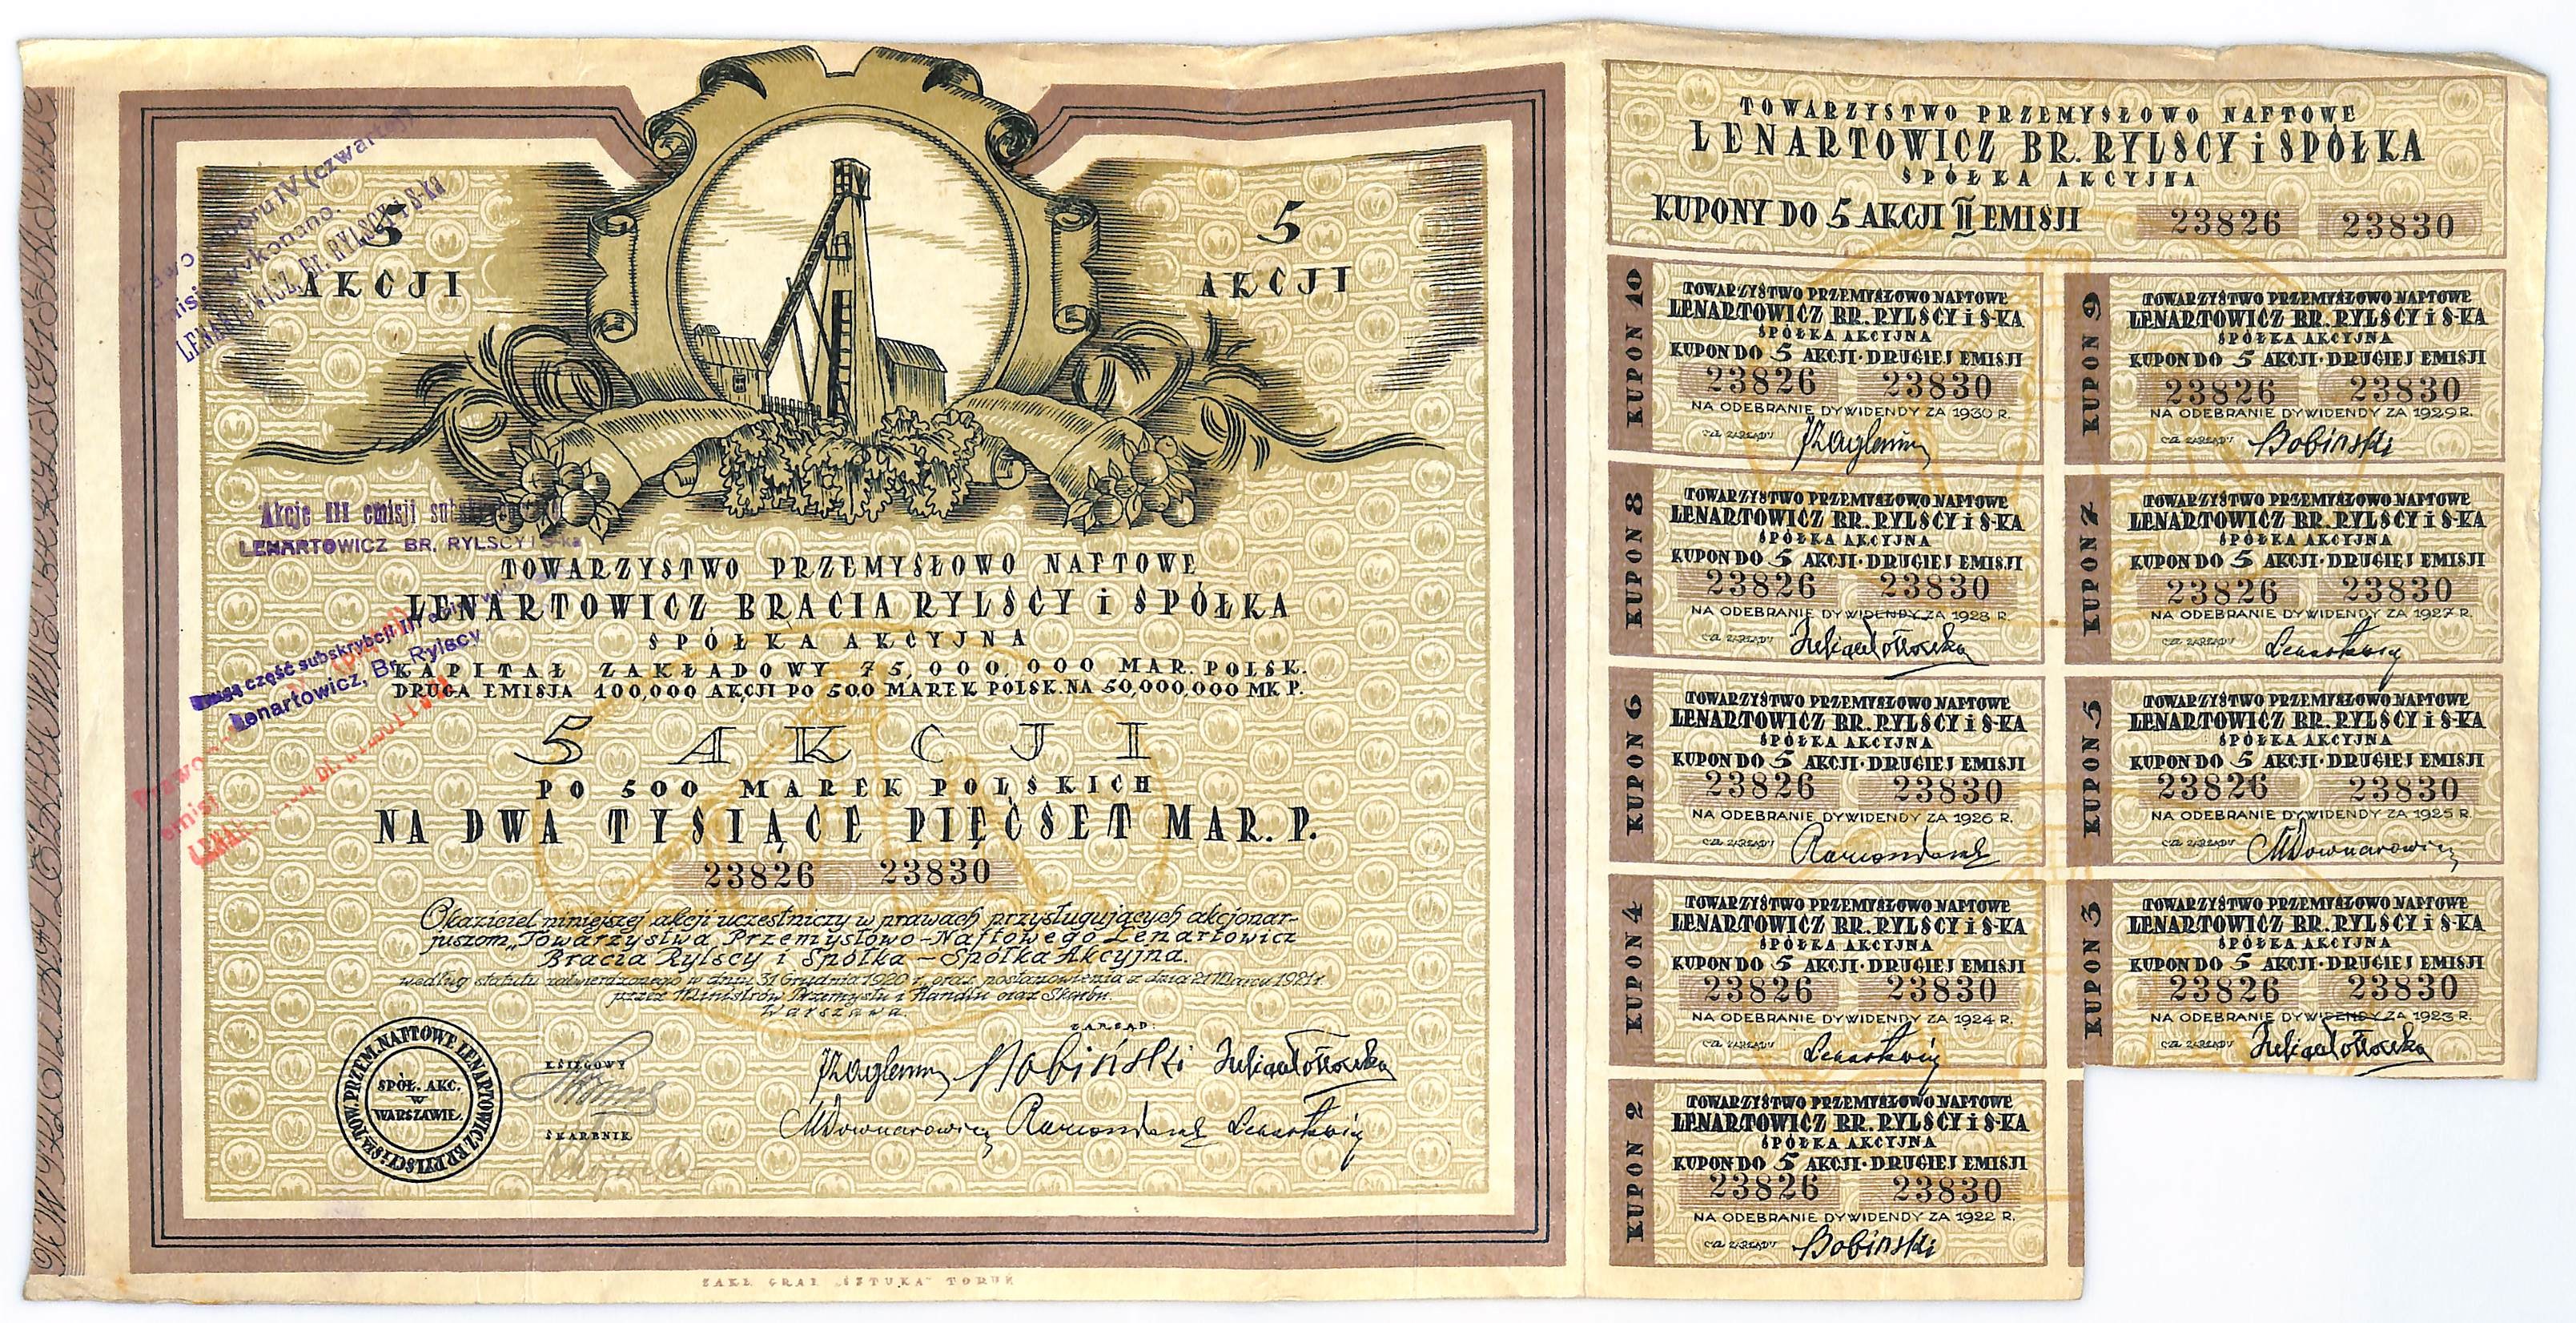 5
AKCJI
5
AKCJI
IV (czwartej)
wykonano.
LENARTOWICZ, Br. RYLSCY i S-ka
Akcje III emisji
LENARTOWICZ BR. RYLSCY i S-ka
TOWARZYSTWO PRZEMYSŁOWO NAFTOWE
LENARTOWICZ BRACIA RYLSCY i SPÓŁKA
SPÓŁKA AKCYJNA
część subskrybcji III
Lenartowicz, Br. Rylscy
KAPITAŁ ZAKŁADOWY 75,000,000 MAR. POLSK.
DRUGA EMISJA 100,000 AKCJI PO 500 MAREK POLSK. NA 50,000,000 MK P.
5 AKCJI
PO 500 MAREK POLSKICH
Prawo
emisji
NA DWA TYSIĄCE PIĘĆSET MAR. P.
23826 23830
Okaziciel niniejszej akcji uczestniczy w prawach przysługujących akcjonar-
juszom „Towarzystwa Przemysłowo-Naftowego Lenartowicz
Bracia Rylscy i Spółka - Spółka Akcyjna.
według statutu zatwierdzonego w dniu 31 Grudnia 1920 r. oraz postanowienia z dnia 21 Marca 1921 r.
przez Ministrów Przemysłu i Handlu oraz Skarbu.
Warszawa.
TOW. PRZEM. NAFTOWE LENARTOWICZ BR. RYLSCY i S-KA
SPÓŁ. AKC.
W
WARSZAWIE.
KSIĘGOWY
SKARBNIK
ZARZĄD:
Bobiński
ZAKŁ. GRAF. „SZTUKA" TORUŃ
TOWARZYSTWO PRZEMYSŁOWO NAFTOWE
LENARTOWICZ BR. RYLSCY i SPÓŁKA
SPÓŁKA AKCYJNA
KUPONY DO 5 AKCJI II EMISJI 23826 23830
KUPON 10
TOWARZYSTWO PRZEMYSŁOWO NAFTOWE
LENARTOWICZ BR. RYLSCY i S-KA
SPÓŁKA AKCYJNA
KUPON DO 5 AKCJI · DRUGIEJ EMISJI
23826 23830
NA ODEBRANIE DYWIDENDY ZA 1930 R.
ZA ZARZĄD:
KUPON 9
TOWARZYSTWO PRZEMYSŁOWO NAFTOWE
LENARTOWICZ BR. RYLSCY i S-KA
SPÓŁKA AKCYJNA
KUPON DO 5 AKCJI · DRUGIEJ EMISJI
23826 23830
NA ODEBRANIE DYWIDENDY ZA 1929 R.
ZA ZARZĄD: Bobiński
KUPON 8
TOWARZYSTWO PRZEMYSŁOWO NAFTOWE
LENARTOWICZ BR. RYLSCY i S-KA
SPÓŁKA AKCYJNA
KUPON DO 5 AKCJI · DRUGIEJ EMISJI
23826 23830
NA ODEBRANIE DYWIDENDY ZA 1928 R.
ZA ZARZĄD:
KUPON 7
TOWARZYSTWO PRZEMYSŁOWO NAFTOWE
LENARTOWICZ BR. RYLSCY i S-KA
SPÓŁKA AKCYJNA
KUPON DO 5 AKCJI · DRUGIEJ EMISJI
23826 23830
NA ODEBRANIE DYWIDENDY ZA 1927 R.
ZA ZARZĄD:
KUPON 6
TOWARZYSTWO PRZEMYSŁOWO NAFTOWE
LENARTOWICZ BR. RYLSCY i S-KA
SPÓŁKA AKCYJNA
KUPON DO 5 AKCJI · DRUGIEJ EMISJI
23826 23830
NA ODEBRANIE DYWIDENDY ZA 1926 R.
ZA ZARZĄD:
KUPON 5
TOWARZYSTWO PRZEMYSŁOWO NAFTOWE
LENARTOWICZ BR. RYLSCY i S-KA
SPÓŁKA AKCYJNA
KUPON DO 5 AKCJI · DRUGIEJ EMISJI
23826 23830
NA ODEBRANIE DYWIDENDY ZA 1925 R.
ZA ZARZĄD:
KUPON 4
TOWARZYSTWO PRZEMYSŁOWO NAFTOWE
LENARTOWICZ BR. RYLSCY i S-KA
SPÓŁKA AKCYJNA
KUPON DO 5 AKCJI · DRUGIEJ EMISJI
23826 23830
NA ODEBRANIE DYWIDENDY ZA 1924 R.
ZA ZARZĄD:
KUPON 3
TOWARZYSTWO PRZEMYSŁOWO NAFTOWE
LENARTOWICZ BR. RYLSCY i S-KA
SPÓŁKA AKCYJNA
KUPON DO 5 AKCJI · DRUGIEJ EMISJI
23826 23830
NA ODEBRANIE DYWIDENDY ZA 1923 R.
ZA ZARZĄD:
KUPON 2
TOWARZYSTWO PRZEMYSŁOWO NAFTOWE
LENARTOWICZ BR. RYLSCY i S-KA
SPÓŁKA AKCYJNA
KUPON DO 5 AKCJI · DRUGIEJ EMISJI
23826 23830
NA ODEBRANIE DYWIDENDY ZA 1922 R.
ZA ZARZĄD: Bobiński